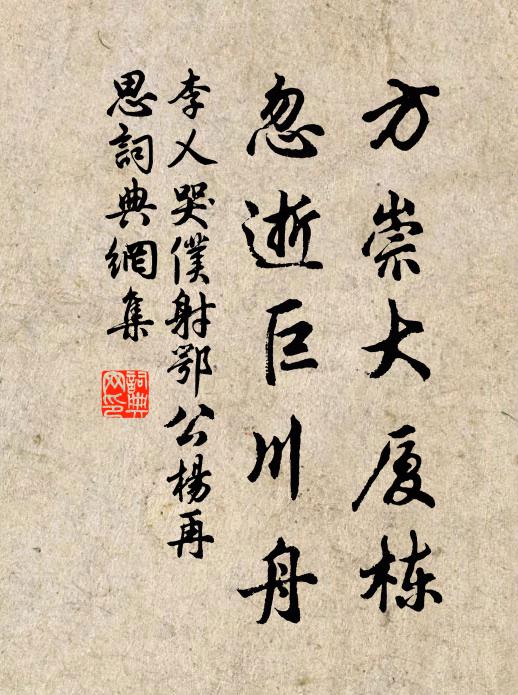 方崇大厦栋
忽逝巨川舟
李乂哭僕射鄂公楊再
思詞典網集
詞典網印